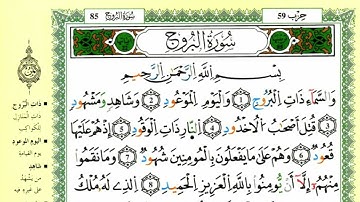 حزب 59
سورة البروج 85
سُورَةُ البُرُوجِ
بِسْمِ اِللَّهِ اِلرَّحْمَٰنِ اِلرَّحِيمِ
وَالسَّمَآءِ ذَاتِ اِلْبُرُوجِ 1 وَالْيَوْمِ اِلْمَوْعُودِ 2 وَشَاهِدٍ وَمَشْهُودٍ
3 قُتِلَ أَصْحَٰبُ اُلُاخْدُودِ 4 اِلنَّارِ ذَاتِ اِلْوَقُودِ 5 إِذْ هُمْ عَلَيْهَا
قُعُودٌ 6 وَهُمْ عَلَىٰ مَا يَفْعَلُونَ بِالْمُومِنِينَ شُهُودٌ 7 وَمَا نَقَمُوا
مِنْهُمُ إِلَّا أَنْ يُومِنُوا بِاللَّهِ اِلْعَزِيزِ اِلْحَمِيدِ 8 اِلذِے لَهُ مُلْكُ
ذات البروج
ذات المنازل
للكواكب
اليوم الموعود
يوم القيامة
شاهد
من يشهد
على غيره فيه